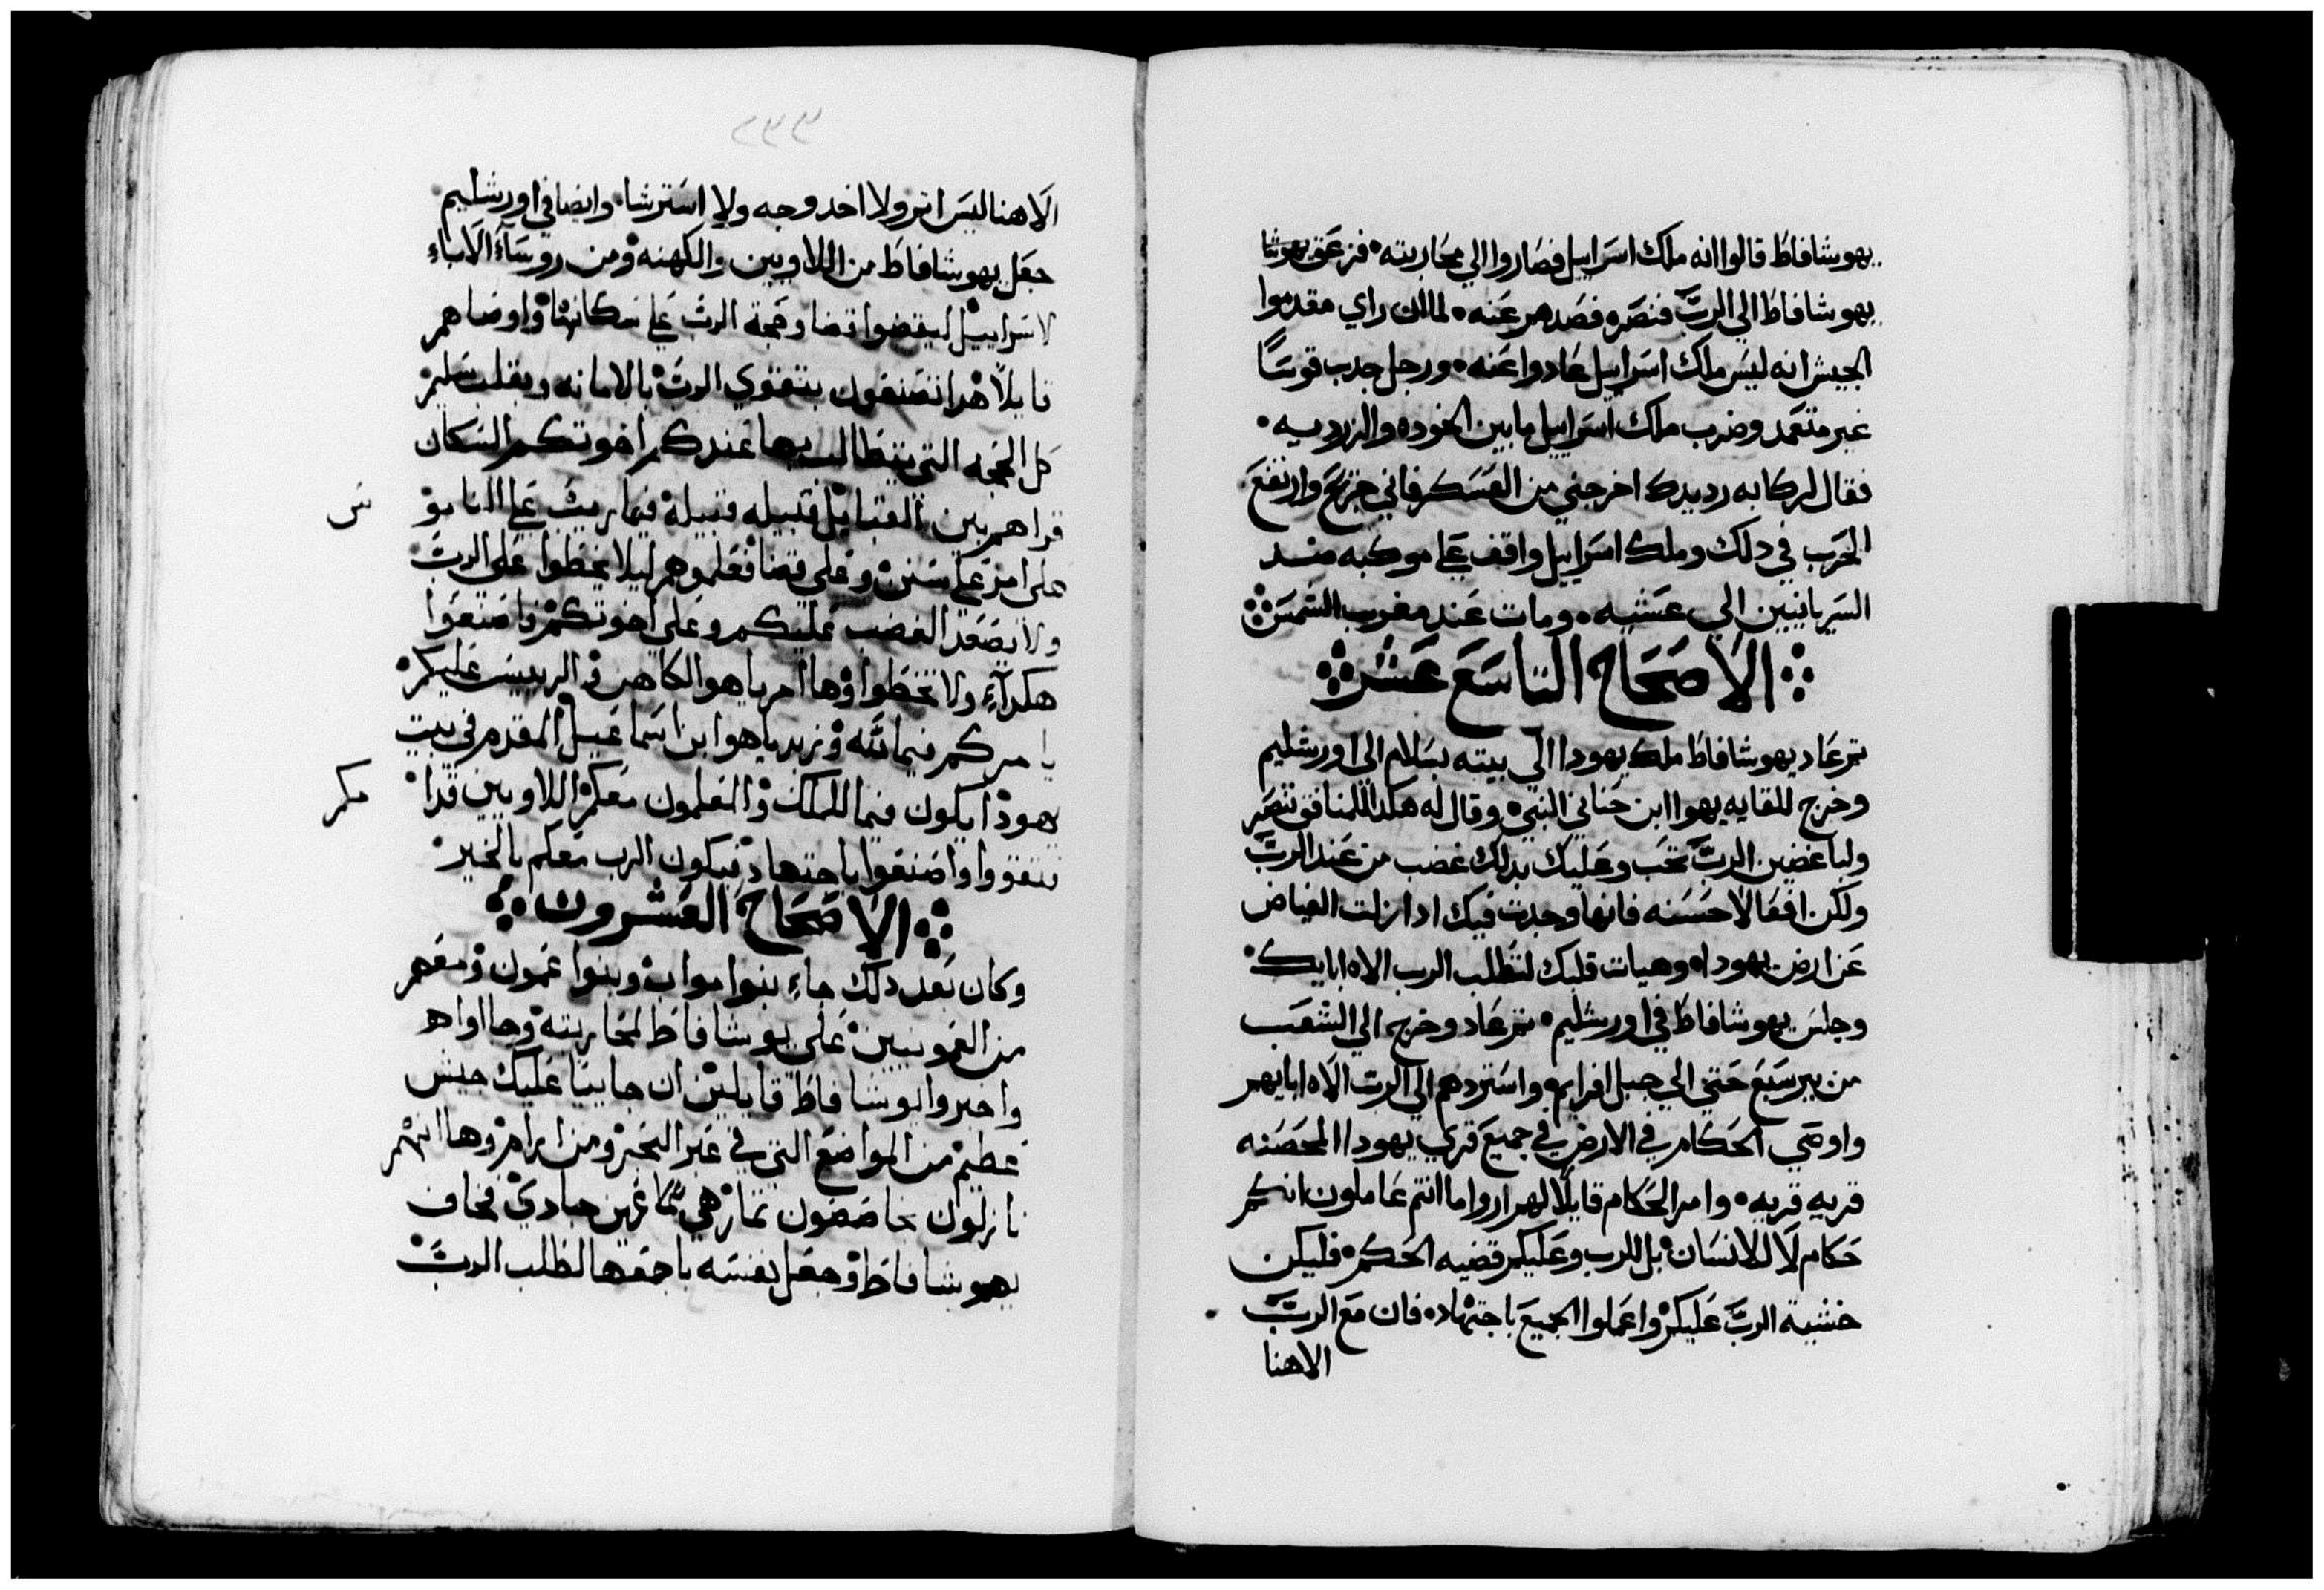 يهوشافاط قالوا انه ملك اسراييل فصاروا الي محاربته فزعق يهوشا
يهوشافاط الي الربّ فنصره فصدهم عنه لما ان راي مقدموا
الجيش انه ليس ملك اسراييل عادوا عنه ورجل جدب قوسًا
غير متعمد وضرب ملك اسراييل ما بين الخوده والزرديه
فقال لركابه رد يدك اخرجني من العسكر فاني جريح وارتفع
الحرب في دلك وملك اسراييل واقف علي موكبه منـد
السريانيين الي عشيه ومات عند مغرب الشمس
الاصحاح التاسع عشر
تم عاد يهوشافاط ملك يهودا الي بيته بسلام الي اورشليم
وخرج للقايه يهوا ابن حناني النبي وقال له هكدا للمنافق تنصر
ولباغضين الربّ تحب وعليك بدلك غضب من عند الربّ
ولكن افعالا حسنه فانها وجدت فيك ادا ازلت الغياض
عن ارض يهودا وهيات قلبك لتطلب الرب الاه ابايك
وجلس يهوشافاط في اورشليم تم عاد وخرج الي الشعب
من بير سبع حتي الي جبل افرايم واستردهم الي الرب الاه ابايهم
واوصي الحكام في الارض في جميع قري يهودا المحصنه
قريه قريه وامر الحكام قايلًا لهم اروا ما انتم عاملون انكم
حكام لا للانسان بل للرب وعليكم قضيه الحكم فليكن
خشية الربّ عليكم واعملوا الجميع باجتهاد فان مع الربّ
الاهنا
٢٣٣
الاهنا ليس اتم ولا اخد وجه ولا استرشا وايضا في اورشليم
جعل يهوشافاط من اللاويين والكهنه ومن روسآء الاباء
لاسراييل ليقضوا قضا وحجة الربّ علي سكانها واوصاهم
قايلًا هدا تصنعون بتقوي الربّ بالامانه وبقلب سليم
كل الحجه التي يتطالب بها عندكم اخوتكم السكان
قراهم بين القبايل قبيله قبيله فيما ريث علي الناموس
علي امر علي سنن وعلي قضا فعلموهم ليلا يخطوا علي الربّ
ولا يصعد الغضب عليكم وعلي اخوتكم فاصنعوا
هكدآء ولا تخطوا وها امرياهو الكاهن والرييس عليكم
يامركم فيما لله وزبدياهوا بن اسماعيل المقدم في بيت
يهودا يكون فيما للملك والمعلمون معكم اللاويين قدامكم
تتقووا واصنعوا باجتهاد فيكون الرب معكم بالخير
الاصحاح العشرون
وكان بعد دلك جاء بنوا مواب وبنوا عمون ومعهم
من العمونيين علي يوشافاط لمحاربته وجااواهم
واخبروا يوشافاط قايلين ان جاييا عليك جيش
عظيم من المواضع التي في عبر البحر ومن ارام وها انهم
نازلون حاصصون تمار هي عين جادي فخاف
يهوشافاط وجعل نفسه باجمعها لطلب الربّ